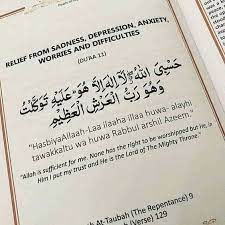 RELIEF FROM SADNESS, DEPRESSION, ANXIETY,
WORRIES AND DIFFICULTIES
(DU'RA 11)
حَسْبِيَ اللَّهُ لَا إِلَهَ إِلَّا هُوَ عَلَيْهِ تَوَكَّلْتُ
وَهُوَ رَبُّ الْعَرْشِ الْعَظِيمِ
"HasbiyaAllaah-Laa ilaaha illaa huwa- alayhi
tawakkaltu wa huwa Rabbul arshil Azeem."
"Allah is sufficient for me. None has the right to be worshipped but He, in
Him I put my trust and He is the Lord of The Mighty Throne."
h At-Taubah (The Repentance) 9
(Verse) 129